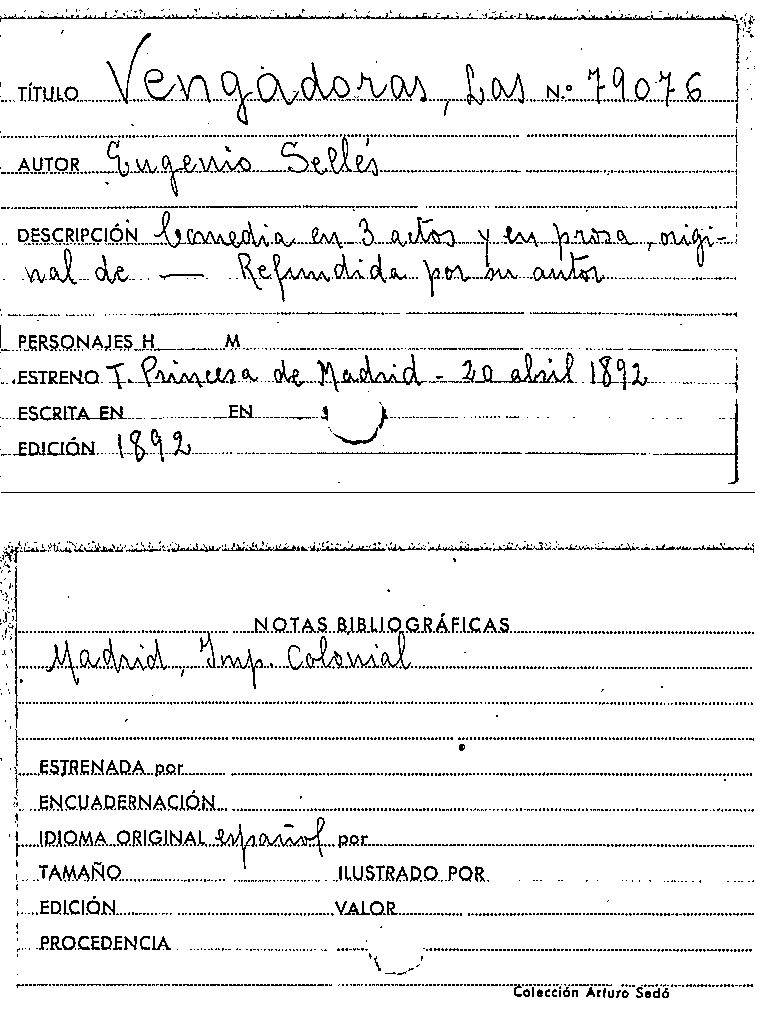 TÍTULO Vengadoras, Las N.º 79076
AUTOR Eugenio Sellés
DESCRIPCIÓN Comedia en 3 actos y en prosa, origi-
nal de — Refundida por su autor
PERSONAJES H M
ESTRENO T. Princesa de Madrid - 20 abril 1892
ESCRITA EN EN
EDICIÓN 1892
NOTAS BIBLIOGRÁFICAS
Madrid, Imp. Colonial
ESTRENADA por
ENCUADERNACIÓN
IDIOMA ORIGINAL español por
TAMAÑO ILUSTRADO POR
EDICIÓN VALOR
PROCEDENCIA
Colección Arturo Sedó